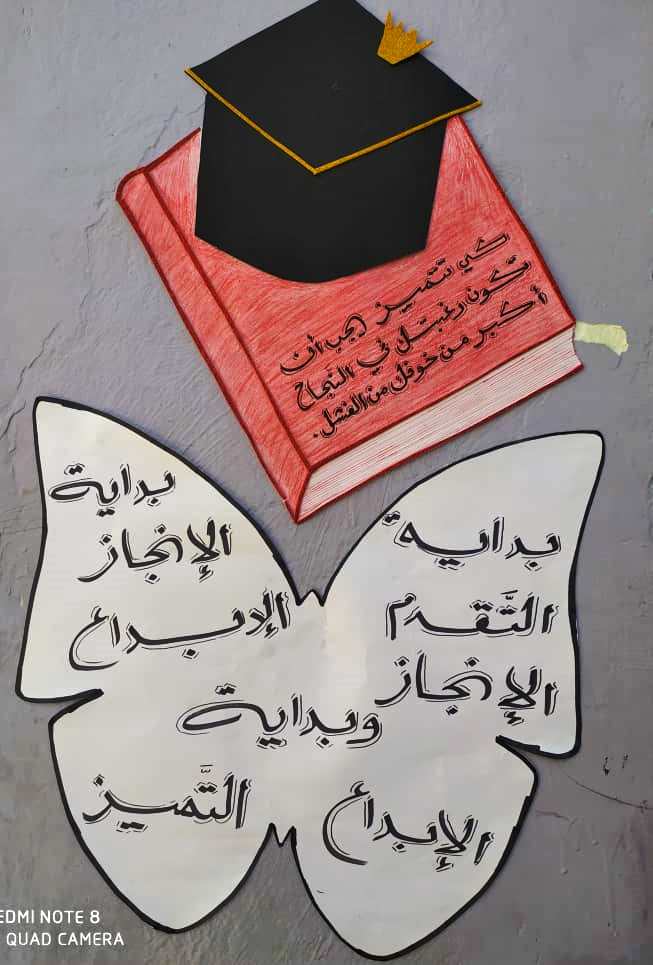 كي تتميز يجب أن
تكون رغبتك في النجاح
أكبر من خوفك من الفشل.
بداية
التَّقدم
الإنجاز
الإبداع
بداية
الإنجاز
الإبداع
وبداية
التَّميز
REDMI NOTE 8
QUAD CAMERA